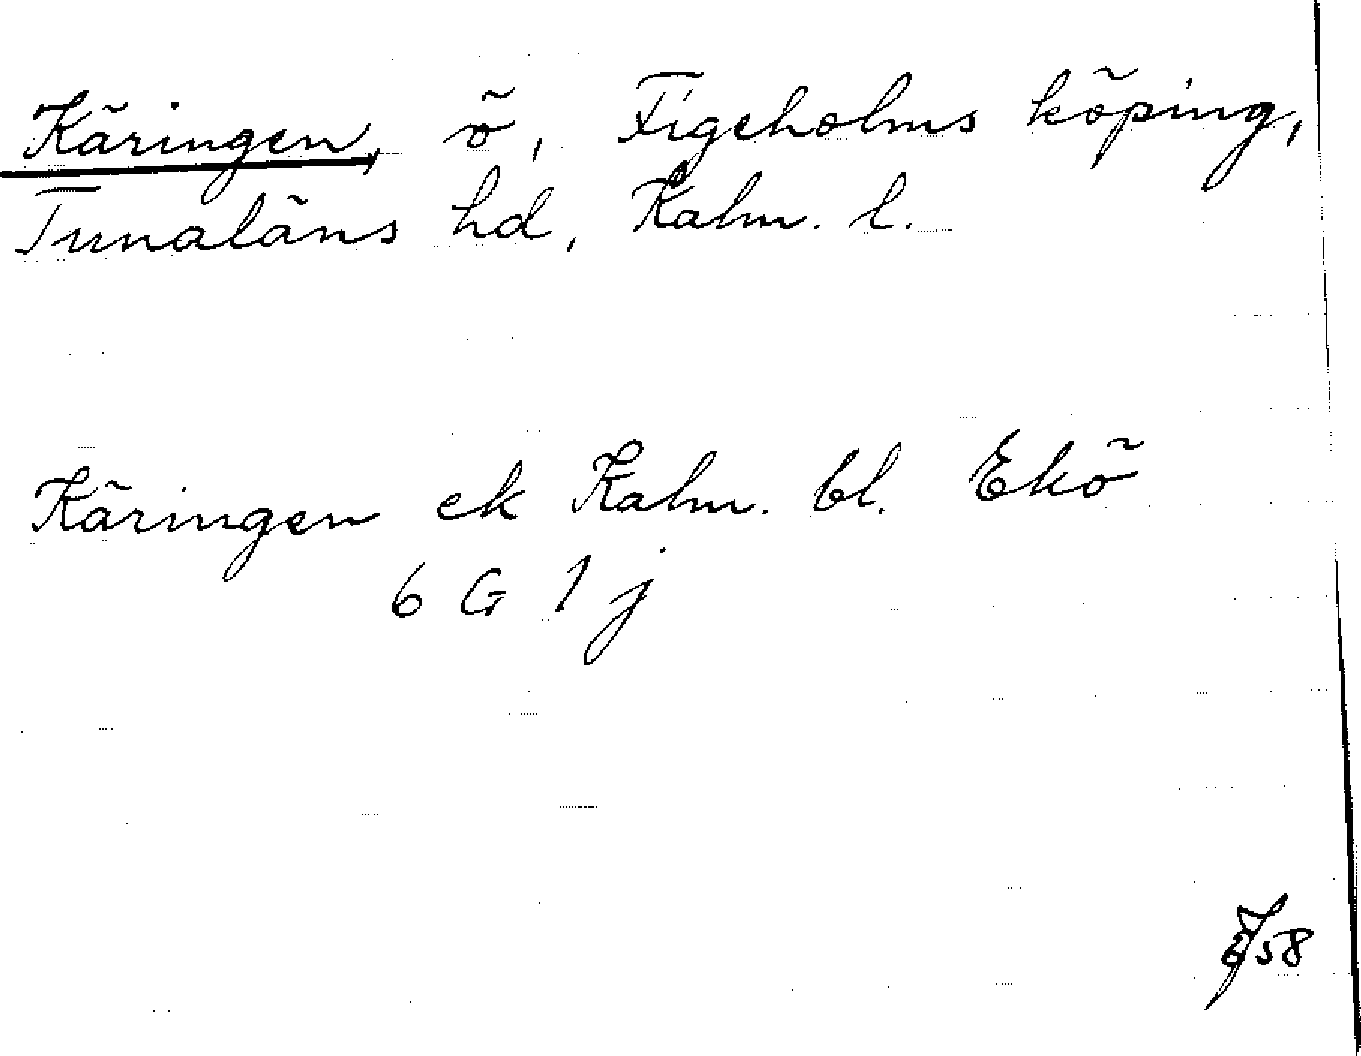 Käringen, ö, Figeholms köping,
Tunaläns hd, Kalm. l.
Käringen ek Kalm. bl. Ekö
6 G 1 j
58